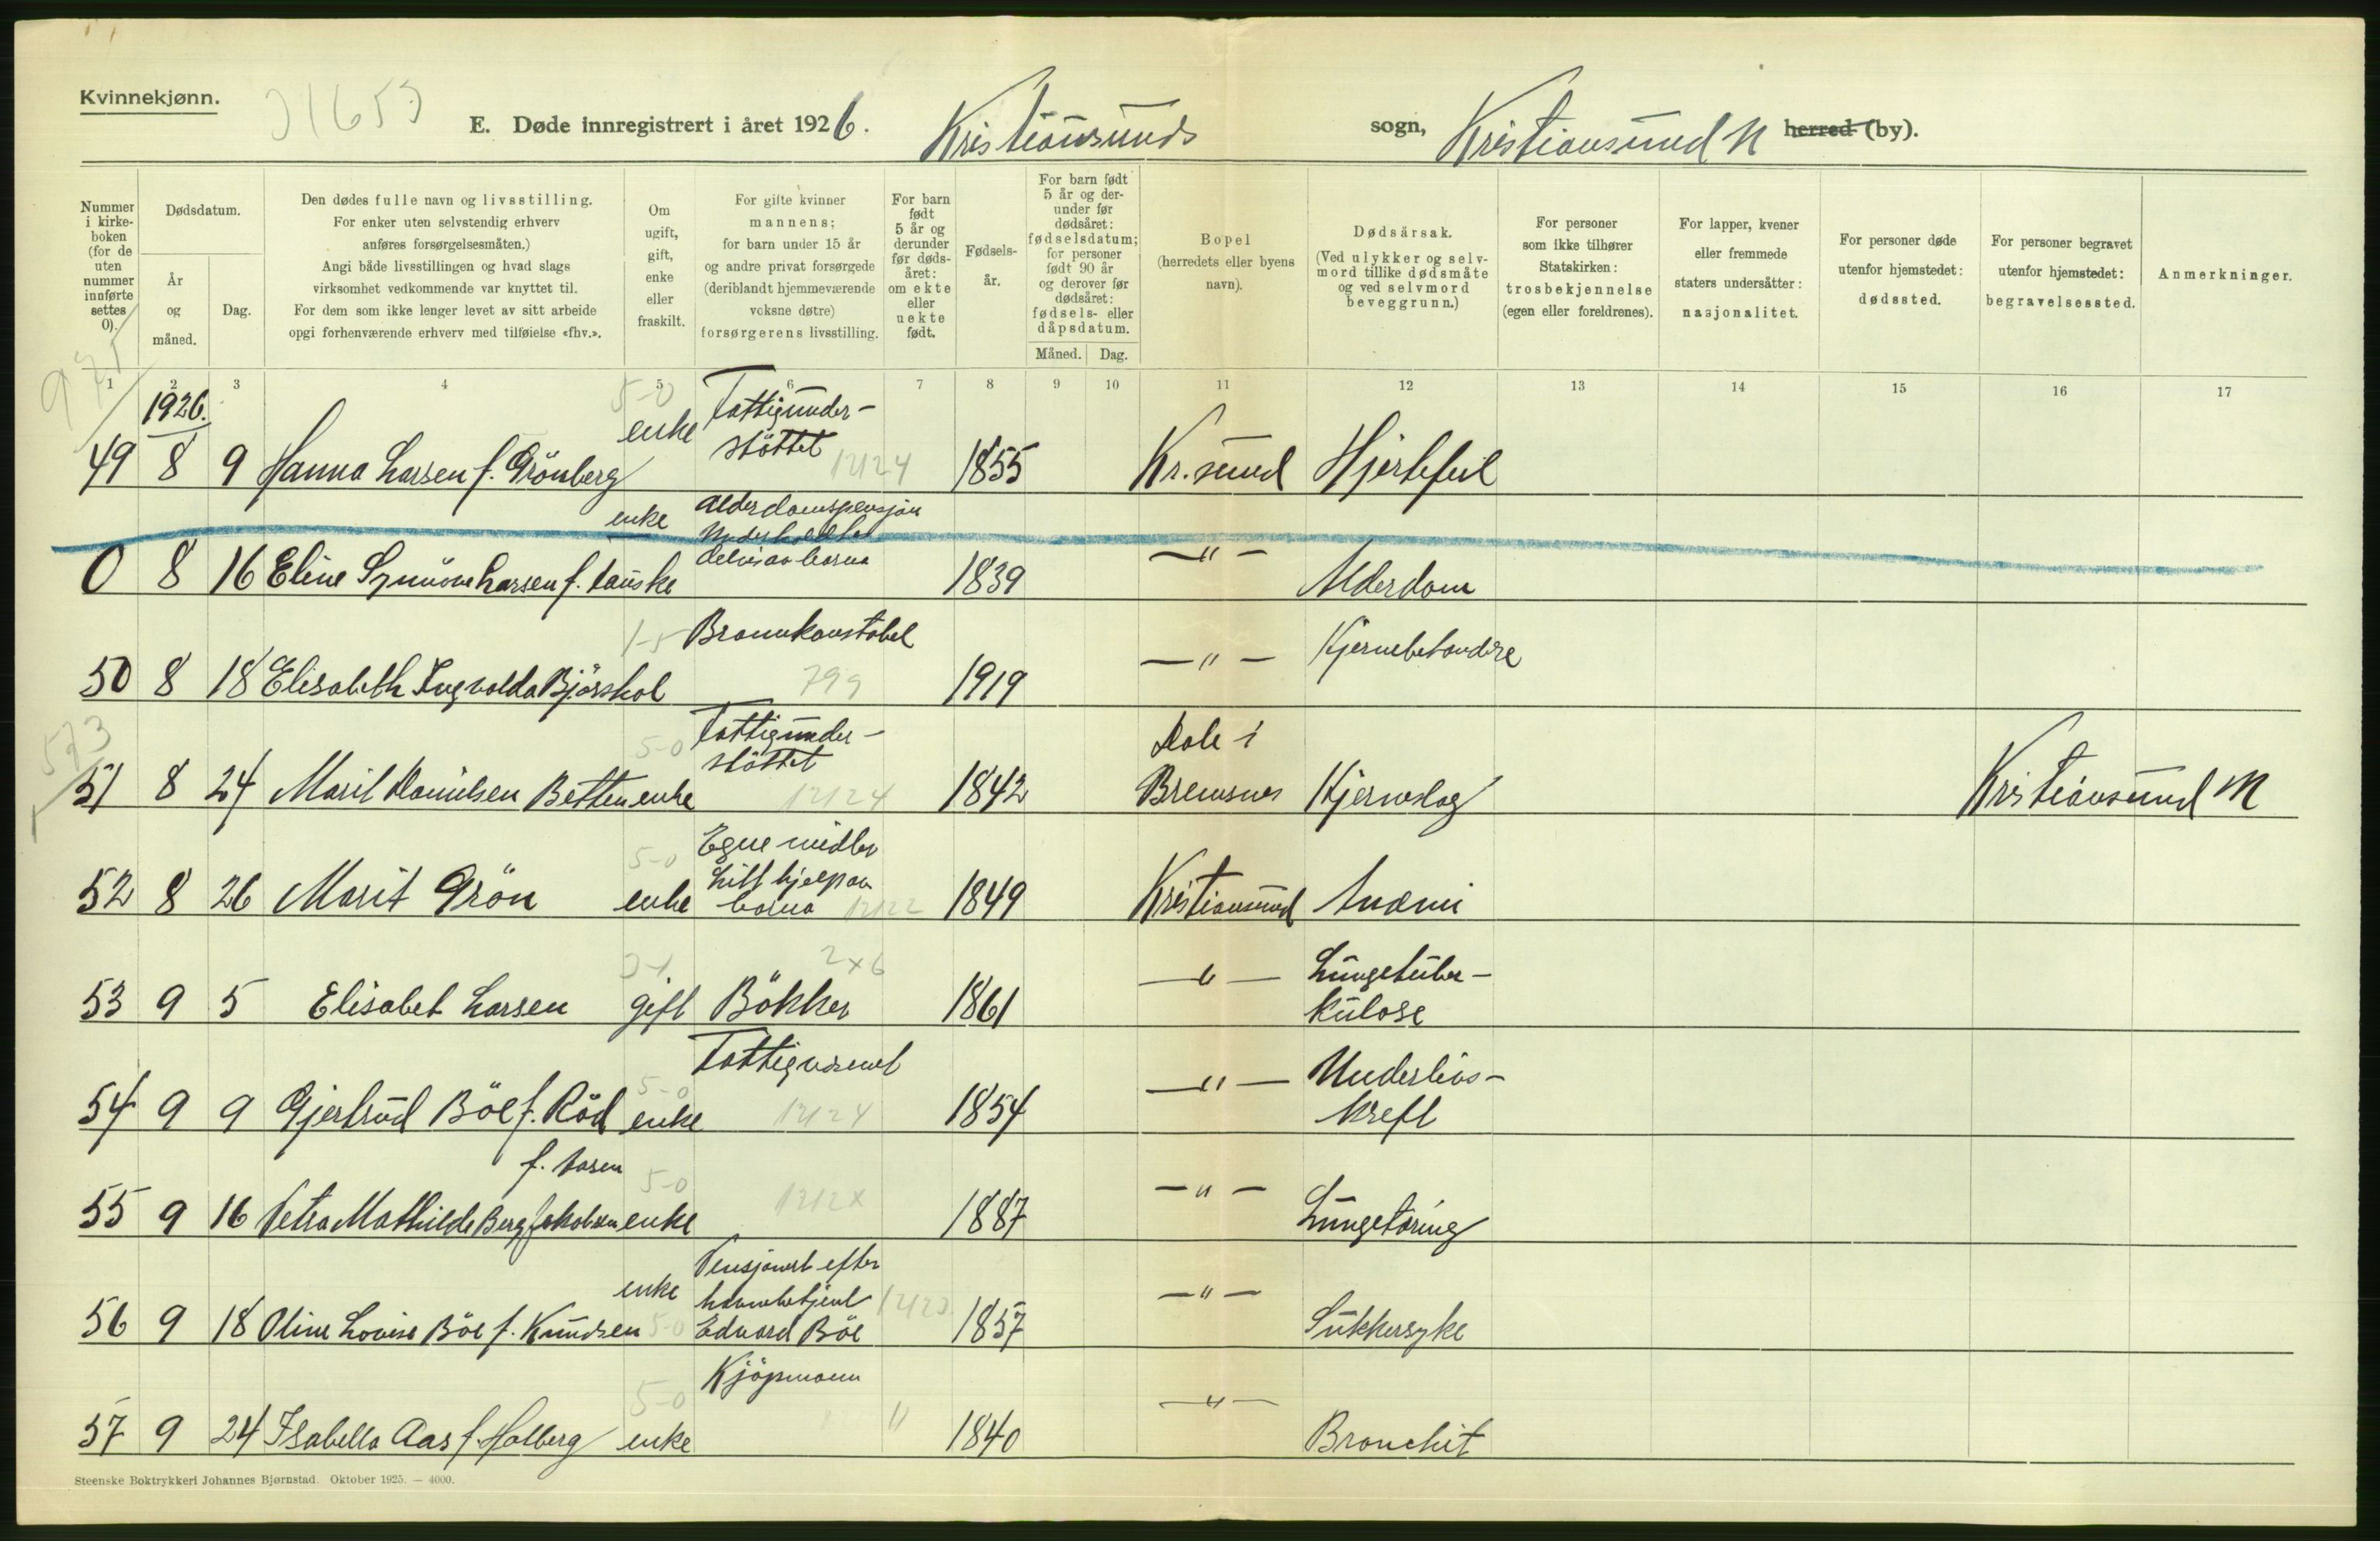 Kvinnekjønn.
E. Døde innregistrert i året 1926. Kristiansunds sogn, Kristiansund N herred (by).
Nummer i kirkeboken (for de uten nummer innførte settes 0).
Dødsdatum.
År og måned.
Dag.
Den dødes fulle navn og livsstilling.
For enker uten selvstendig erhverv
anføres forsørgelsesmåten.)
Angi både livsstillingen og hvad slags
virksomhet vedkommende var knyttet til.
For dem som ikke lenger levet av sitt arbeide
opgi forhenværende erhverv med tilføielse «fhv.».
Om ugift, gift, enke eller fraskilt.
For gifte kvinner
mannens;
for barn under 15 år
og andre privat forsørgede
(deriblandt hjemmeværende
voksne døtre)
forsørgerens livsstilling.
For barn født 5 år og derunder før dødsåret: om ekte eller uekte født.
Fødselsår.
For barn født 5 år og derunder før dødsåret: fødselsdatum; for personer født 90 år og derover før dødsåret: fødsels- eller dåpsdatum.
Måned. Dag.
Bopel
(herredets eller byens
navn).
Dødsårsak.
(Ved ulykker og selvmord tillike dødsmåte og ved selvmord beveggrunn.)
For personer
som ikke tilhører
Statskirken:
trosbekjennelse
(egen eller foreldrenes).
For lapper, kvener
eller fremmede
staters undersåtter:
nasjonalitet.
For personer døde
utenfor hjemstedet:
dødssted.
For personer begravet
utenfor hjemstedet:
begravelsessted.
Anmerkninger.
1 2 3 4 5 6 7 8 9 10 11 12 13 14 15 16 17
1926.
49 8 9 Hanna Larsen f. Grönberg enke Fattigunder-
stöttet 12124 1855 Kr.sund Hjertefeil
0 8 16 Eline Larsen f. enke Alderdomspensjon
delvis av barna 1839 —"— Alderdom
50 8 18 Elisabeth Ingvalda Björshol Brannkonstabel 799 1919 —"— Hjernebetendelse
51 8 24 Marit Danielsen Betten enke Fattigunder-
stöttet 12124 1842 Dale i
Bremsnes Hjerneslag Kristiansund N
52 8 26 Marit Grön enke Egne midler
Litt hjelp av
barna 12122 1849 Kristiansund Anæmi
53 9 5 Elisabet Larsen gift Bökker 1861 —"— Lungetuber-
kulose
54 9 9 Gjertrud Böe f. Röd enke Fattigvesenet 12124 1854 —"— Underlivs-
kreft
55 9 16 Petra Mathilde Berg Jakobsen enke 1887 —"— Lungetæring
56 9 18 Oline Lovise Böe f. Knudsen enke Pensjonert efter
havnebetjent
Edvard Böe 1857 —"— Sukkersyke
57 9 24 Isabella Aas f. Holberg enke Kjöpmann " 1840 —"— Bronchit
Steenske Boktrykkeri Johannes Bjørnstad. Oktober 1925. — 4000.